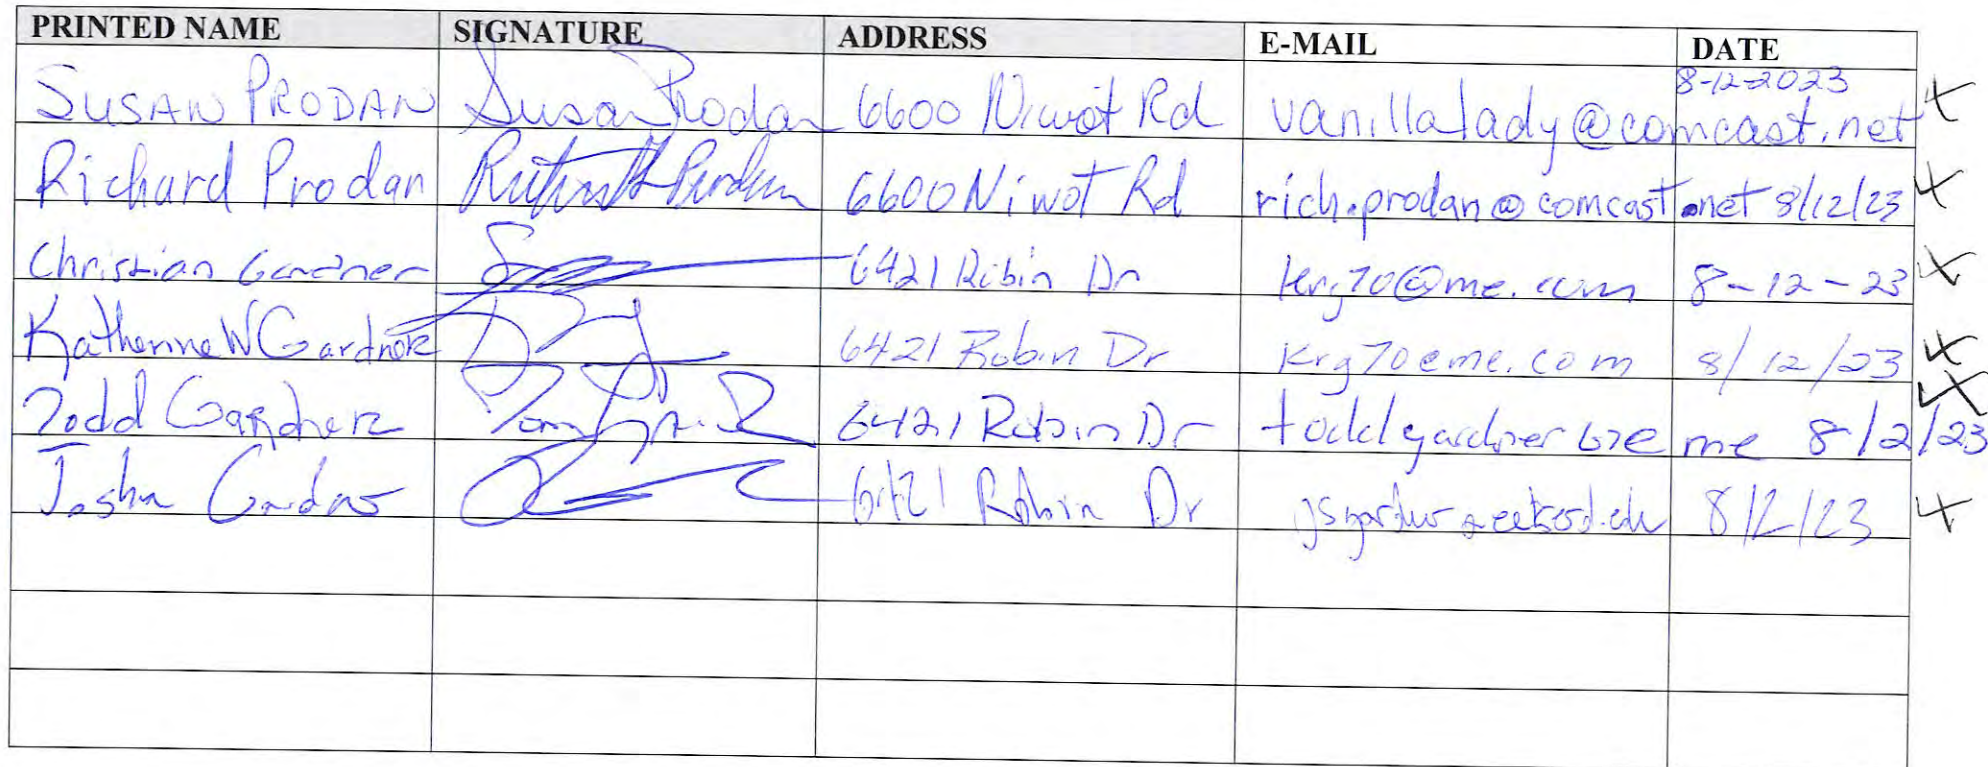 PRINTED NAME SIGNATURE ADDRESS E-MAIL DATE
8-12-2023
SUSAN PRODAN Susan Prodan 6600 Niwot Rd vanillalady@comcast.net
Richard Prodan 6600 Niwot Rd rich.prodan@comcast.net 8/12/23
Christian Gardner 6421 Robin Dr krg70@me.com 8-12-23
Katherine W Gardner 6421 Robin Dr krg70eme.com 8/12/23
Todd Gardner 6421 Robin Dr me 8/2/23
Joshua Gardner 6421 Robin Dr 8/2/23